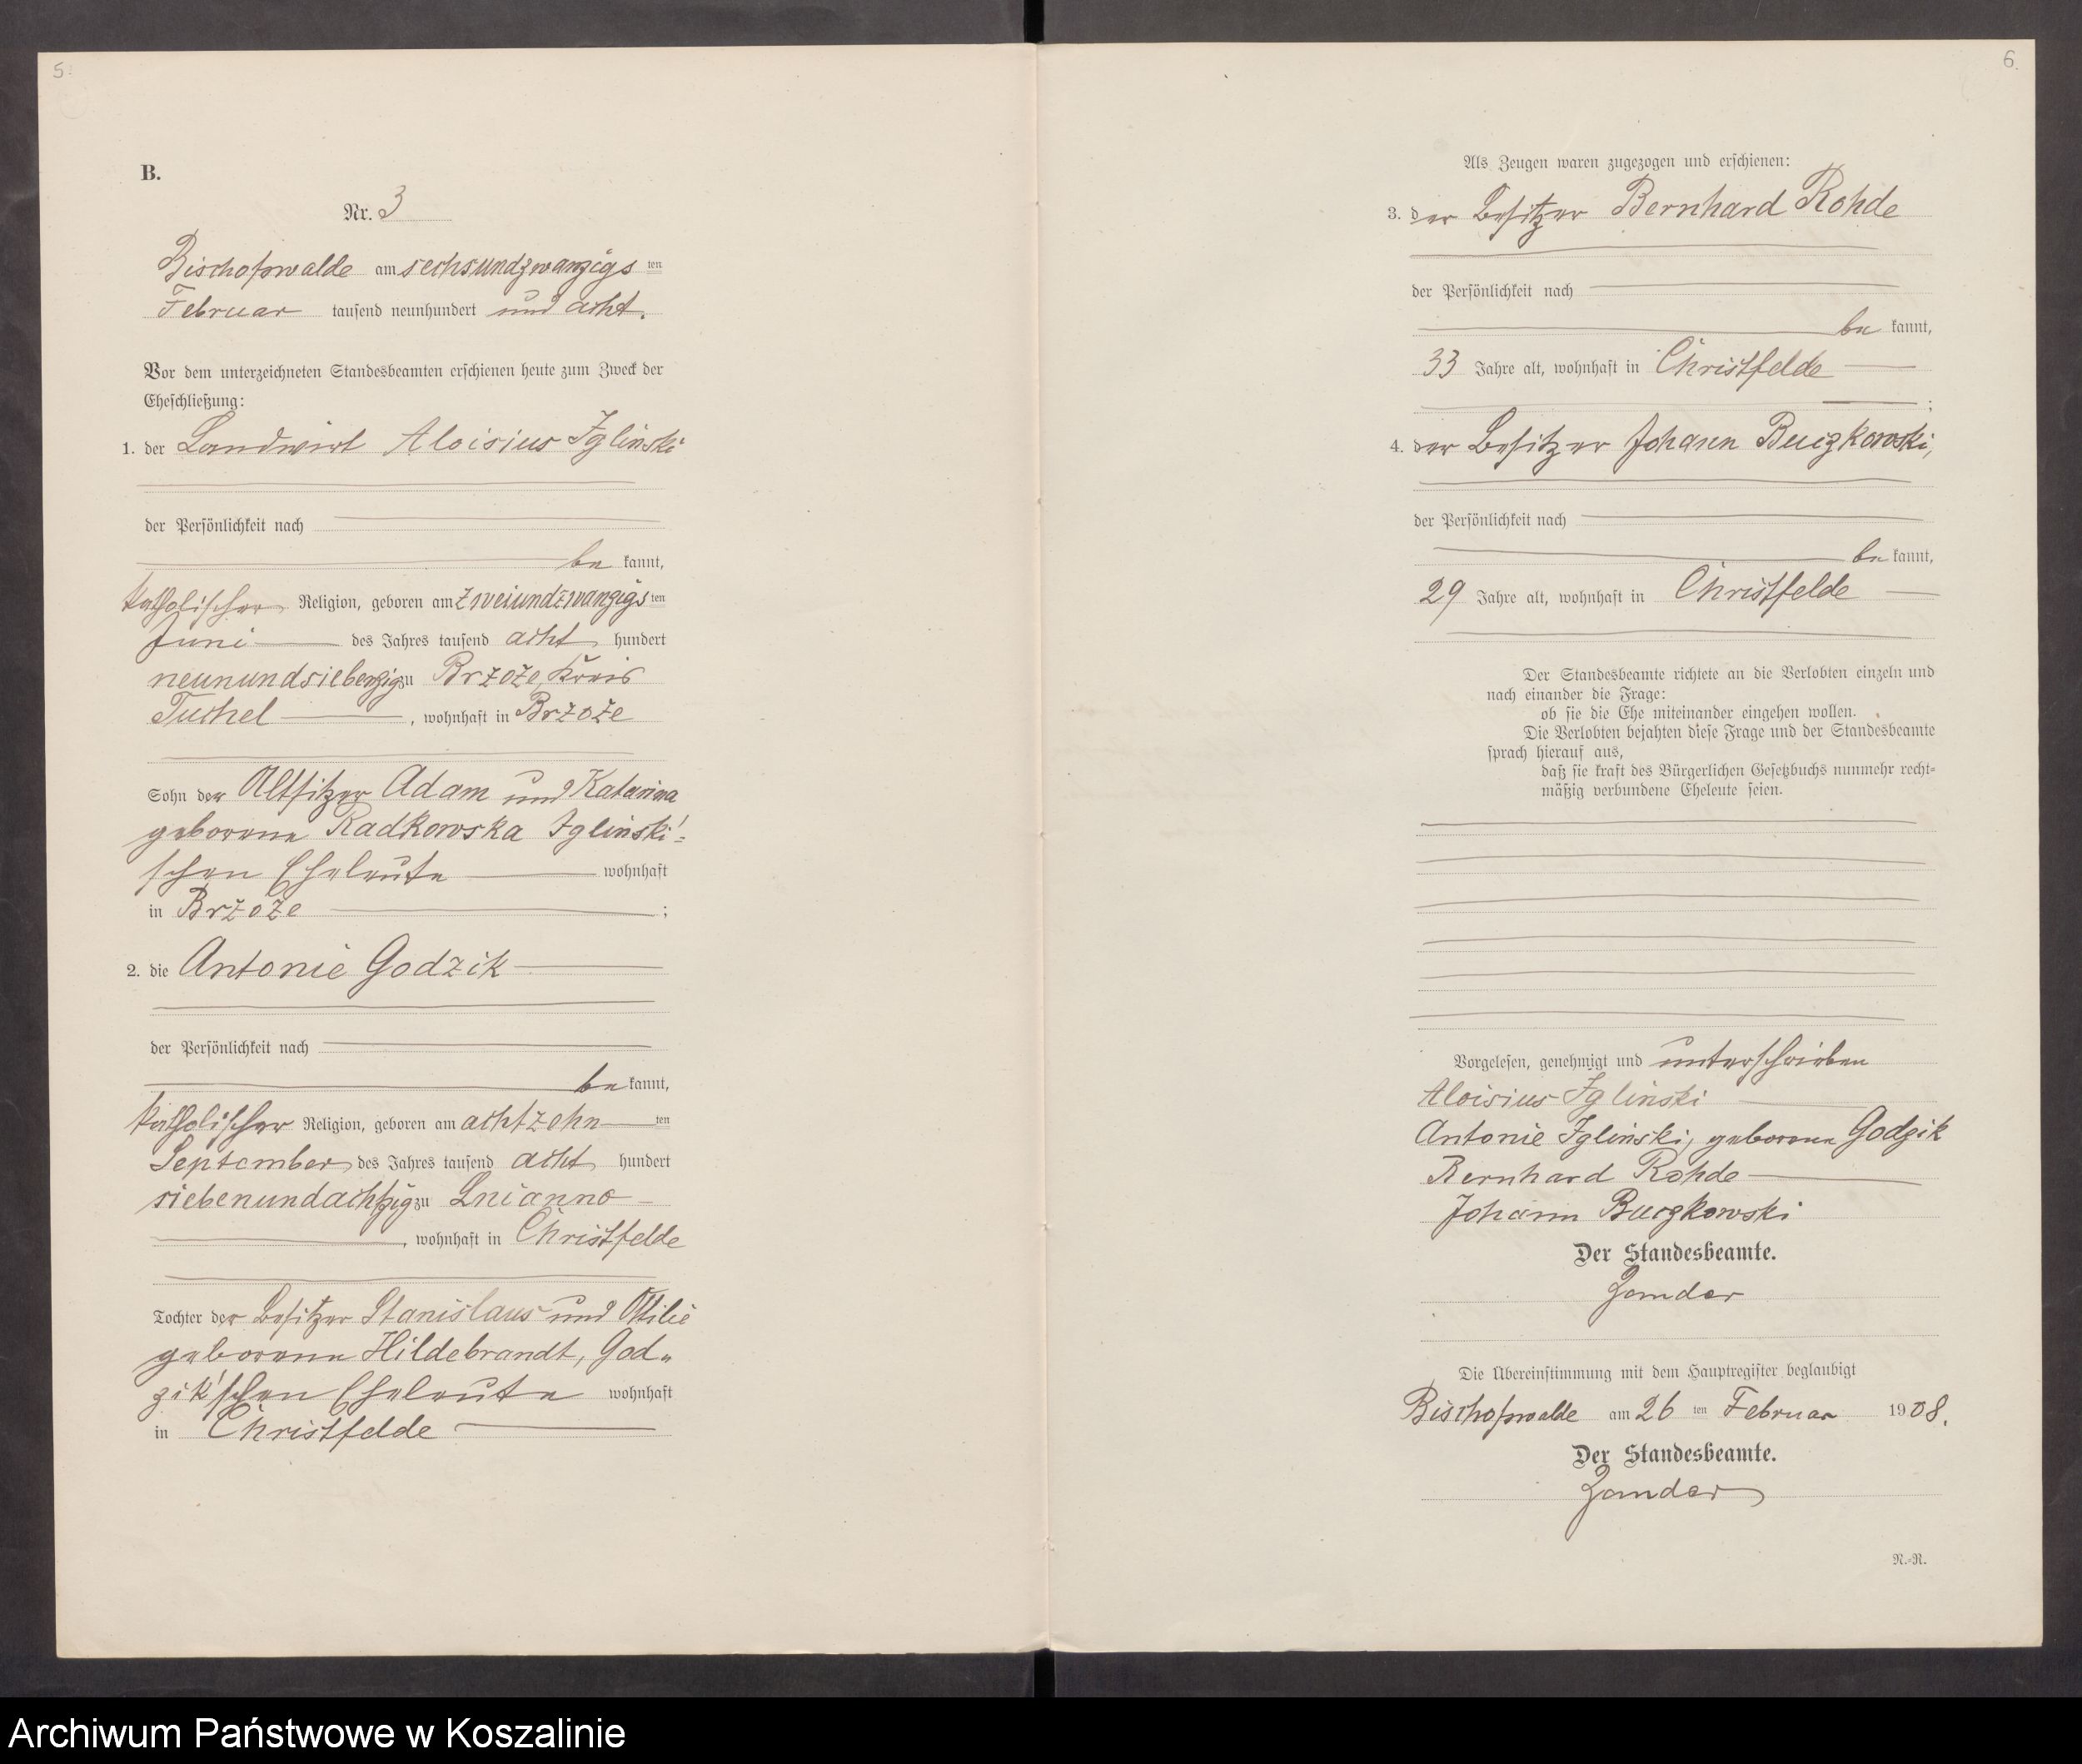 5.
B.
Nr. 3
Bischofswalde am sechsundzwanzigs ten
Februar tausend neunhundert und acht.
Vor dem unterzeichneten Standesbeamten erschienen heute zum Zweck der
Eheschließung:
1. der Landwirt Aloisius Igliński
der Persönlichkeit nach
be kannt,
katholischer Religion, geboren am zweiundzwanzigs ten
Juni des Jahres tausend acht hundert
neunundsiebenzig zu Brzoże, Kreis
Tuchel, wohnhaft in Brzoże
Sohn der Altsitzer Adam und Katarina
geborene Radkowska Igliński'-
schen Eheleute wohnhaft
in Brzoże ;
2. die Antonie Godzik
der Persönlichkeit nach
be kannt,
katholischer Religion, geboren am achtzehn ten
September des Jahres tausend acht hundert
siebenundachtzig zu Lnianno
, wohnhaft in Christfelde
Tochter der Besitzer Stanislaus und Ottilie
geborene Hildebrandt, God„
zik'schen Eheleute wohnhaft
in Christfelde
6.
Als Zeugen waren zugezogen und erschienen:
3. der Besitzer Bernhard Rohde
der Persönlichkeit nach
be kannt,
33 Jahre alt, wohnhaft in Christfelde
;
4. der Besitzer Johann Buczkowski,
der Persönlichkeit nach
be kannt,
29 Jahre alt, wohnhaft in Christfelde
Der Standesbeamte richtete an die Verlobten einzeln und
nach einander die Frage:
ob sie die Ehe miteinander eingehen wollen.
Die Verlobten bejahten diese Frage und der Standesbeamte
sprach hierauf aus,
daß sie kraft des Bürgerlichen Gesetzbuchs nunmehr recht-
mäßig verbundene Eheleute seien.
Vorgelesen, genehmigt und unterschrieben
Aloisius Igliński
Antonie Igliński, geborene Godzik
Bernhard Rohde
Johann Buczkowski
Der Standesbeamte.
Zander
Die Übereinstimmung mit dem Hauptregister beglaubigt
Bischofswalde am 26 ten Februar 1908.
Der Standesbeamte.
Zander
N.-R.
Archiwum Państwowe w Koszalinie